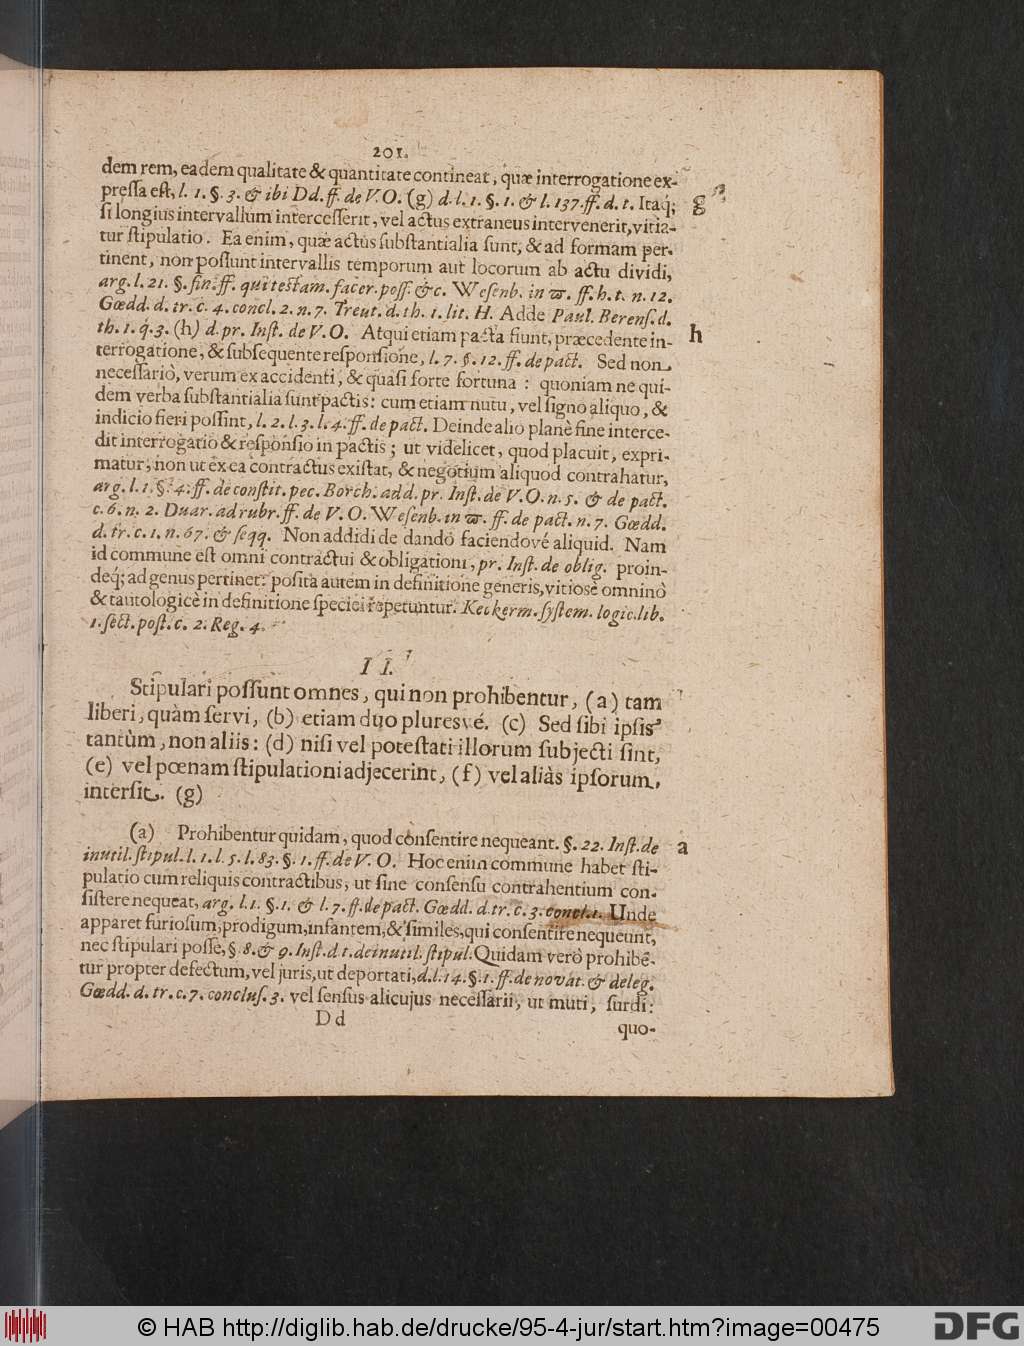 201.
dem rem, eadem qualitate & quantitate contineat, quæ interrogatione ex-
pressa est, l. 1. §. 3. & ibi Dd. ff. de V. O. (g) d. l. 1. §. 1. & l. 137. ff. d. t. Itaq;
si longius intervallum intercesserit, vel actus extraneus intervenerit, vitia-
tur stipulatio. Ea enim, quæ actus substantialia sunt, & ad formam per-
tinent, non possunt intervallis temporum aut locorum ab actu dividi,
arg. l. 21. §. fin. ff. qui testam. facer. poss. &c. Wesenb. in ϖ. ff. h. t. n. 12.
Gœdd. d. tr. c. 4. concl. 2. n. 7. Treut. d. th. 1. lit. H. Adde Paul. Berens. d.
th. 1. q. 3. (h) d. pr. Inst. de V. O. Atqui etiam pacta fiunt, præcedente in-
terrogatione, & subsequente responsione, l. 7. §. 12. ff. de pact. Sed non
necessariò, verum ex accidenti, & quasi forte fortuna : quoniam ne qui-
dem verba substantialia sunt pactis: cum etiam nutu, vel signo aliquo, &
indicio fieri possint, l. 2. l. 3. l. 4. ff. de pact. Deinde alio planè fine interce-
dit interrogatio & responsio in pactis ; ut videlicet, quod placuit, expri-
matur; non ut ex ea contractus existat, & negotium aliquod contrahatur,
arg. l. 1. §. 4. ff. de constit. pec. Borch. add. pr. Inst. de V. O. n. 5. & de pact.
c. 6. n. 2. Duar. ad rubr. ff. de V. O. Wesenb. in ϖ. ff. de pact. n. 7. Gœdd.
d. tr. c. 1. n. 67. & seqq. Non addidi de dando faciendové aliquid. Nam
id commune est omni contractui & obligationi, pr. Inst. de oblig. proin-
deq; ad genus pertinet: posita autem in definitione generis, vitiosè omninò
& tautologicè in definitione speciei repetuntur. Keckerm. system. logic. lib.
1. sect. post. c. 2. Reg. 4.
g
h
II.
Stipulari possunt omnes, qui non prohibentur, (a) tam
liberi, quàm servi, (b) etiam duo pluresvé. (c) Sed sibi ipsis
tantùm, non aliis: (d) nisi vel potestati illorum subjecti sint,
(e) vel pœnam stipulationi adjecerint, (f) vel aliàs ipsorum
intersit. (g)
(a) Prohibentur quidam, quod consentire nequeant. §. 22. Inst. de
inutil. stipul. l. 1. l. 5. l. 83. §. 1. ff. de V. O. Hoc enim commune habet sti-
pulatio cum reliquis contractibus, ut sine consensu contrahentium con-
sistere nequeat, arg. l. 1. §. 1. & l. 7. ff. de pact. Gœdd. d. tr. c. 3. concl. 1. Unde
apparet furiosum, prodigum, infantem, & similes, qui consentire nequeunt,
nec stipulari posse, § 8. & 9. Inst. d t. de inutil. stipul. Quidam verò prohibē-
tur propter defectum, vel juris, ut deportati, d. l. 14. §. 1. ff. de novat. & deleg.
Gœdd. d. tr. c. 7. conclus. 3. vel sensus alicujus necessarii, ut muti, surdi:
a
Dd
quo-
© HAB http://diglib.hab.de/drucke/95-4-jur/start.htm?image=00475
DFG